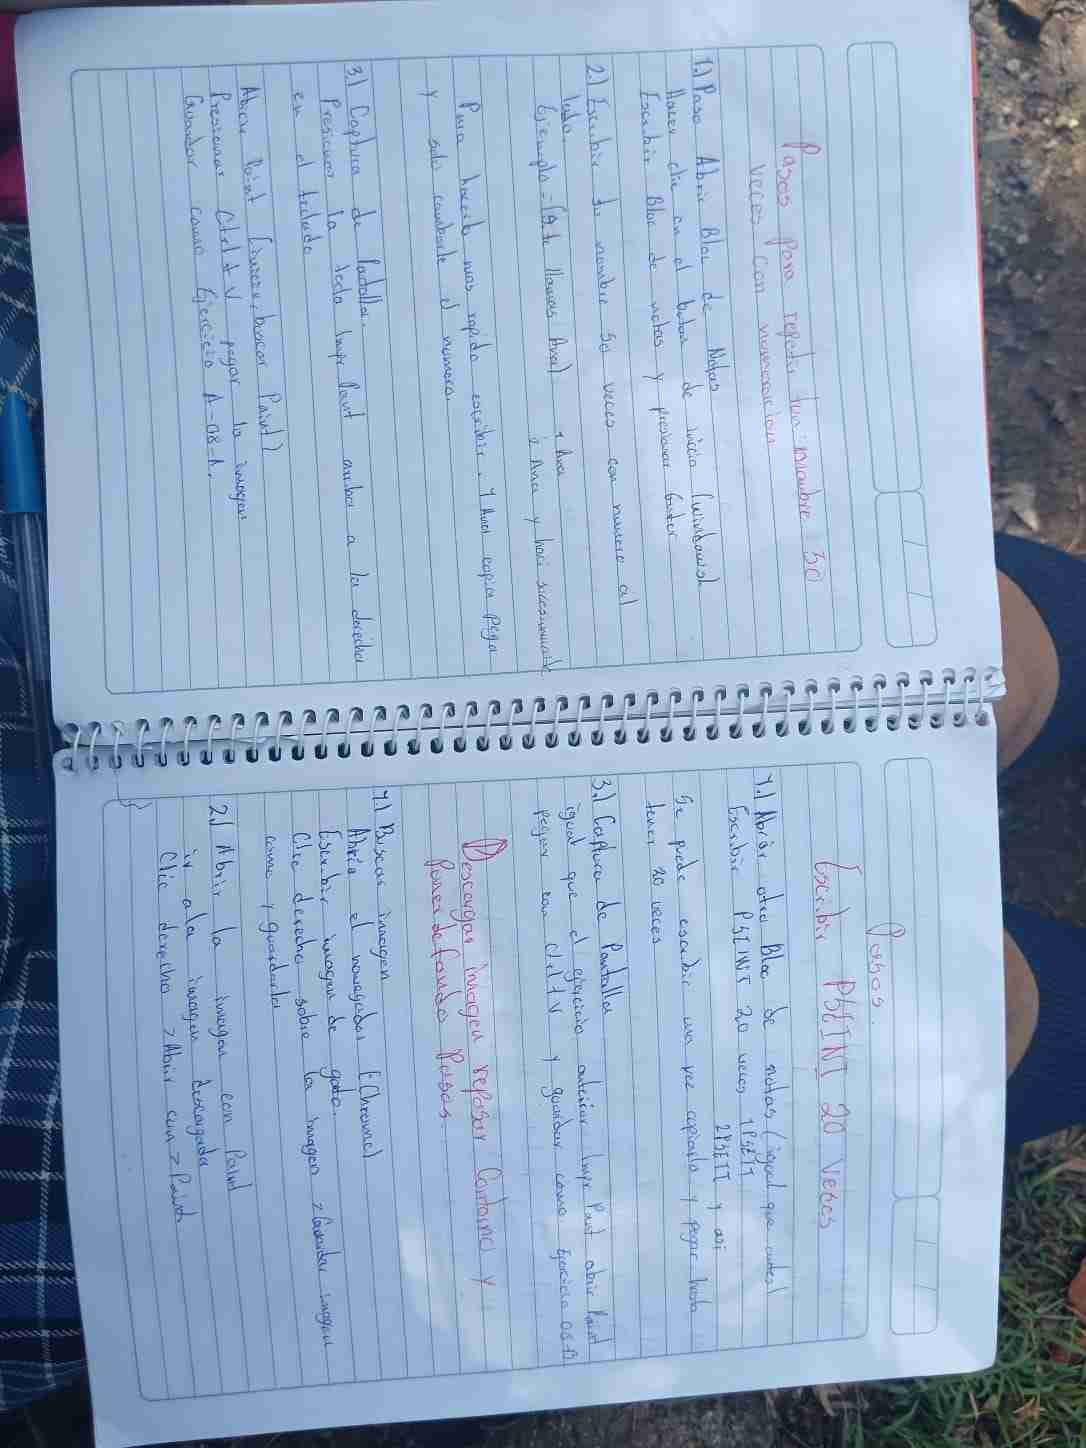 Pasos para repetir tu nombre 50
veces con numeracion
1.) Paso Abrir Bloc de Notas
Hacer clic en el boton de inicio (windows)
Escribir Bloc de notas y presionar Enter
2.) Escribir tu nombre 50 veces con numero al
lado.
Ejemplo = (si te llamas Ana) 1 Ana
2 Ana y haci
Para hacerlo mas rapido escribir 1 Ana copia pega
y solo cambiarle el numero.
3.) Captura de Pantalla.
Presionar la tecla Impr Pant arriba a la derecha
en el teclado
Abrir Paint (buscar Paint)
Presionar Ctrl + V pegar la imagen
Guardar como Ejercicio A-08-A.
Pasos.
Escribir PSEINT 20 veces
1.) Abrir otro Bloc de notas (igual que antes)
Escribir PSEINT 20 veces 1PSEIT
2PSEIT y asi
Se puede escribir una vez copiarlo y pegar hasta
tener 20 veces
3.) Captura de Pantalla
igual que el ejercicio anterior Impr Pant abrir Paint
pegar con Ctrl+V y guardar como Ejercicio 08-B
Descargar imagen repasar Contorno y
Poner de fondo Pasos.
1.) Buscar imagen
Abrir el navegador (Chrome)
Escribir imagen de gato.
Clic derecho sobre la imagen > Guardar imagen
como y guardarla
2.) Abrir la imagen con Paint
ir a la imagen descargada
Clic derecho > Abrir con > Paint